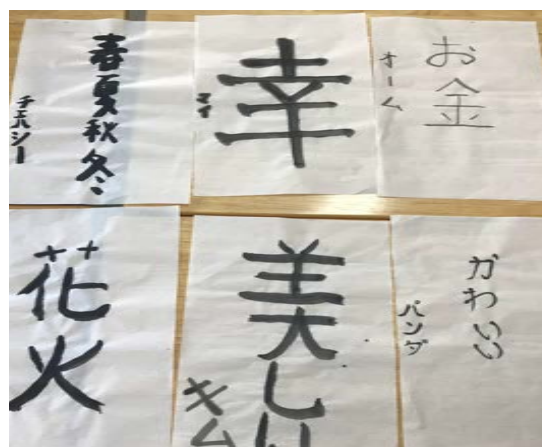 春夏秋冬
チェルシー
幸
マイ
お金
オーム
花火
美しい
キム
かわいい
パンダ